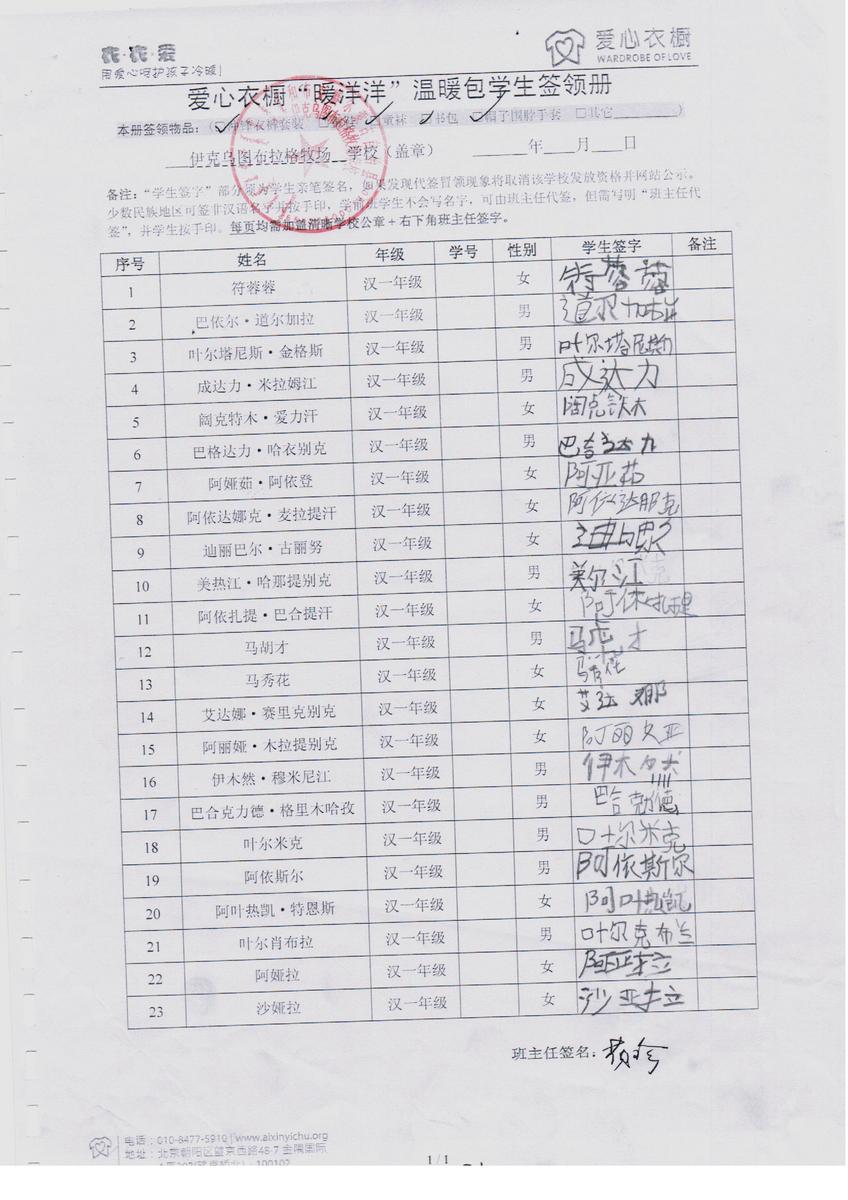 衣·衣·爱
用爱心呵护孩子冷暖!
爱心衣橱
WARDROBE OF LOVE
爱心衣橱“暖洋洋”温暖包学生签领册
本册签领物品:(☑冲锋衣裤套装 童袜 书包 帽子围脖手套 □其它 )
伊克乌图布拉格牧场 学校(盖章) 年 月 日
备注:“学生签字”部分须为学生亲笔签名,如果发现代签冒领现象将取消该学校发放资格并网站公示。
少数民族地区可签非汉语名字并按手印,学前班学生不会写名字,可由班主任代签,但需写明“班主任代
签”,并学生按手印。每页均需加盖清晰学校公章+右下角班主任签字。
序号 姓名 年级 学号 性别 学生签字 备注
1 符蓉蓉 汉一年级 女 符蓉蓉
2 巴依尔·道尔加拉 汉一年级 男 道尔加
3 叶尔塔尼斯·金格斯 汉一年级 男 叶尔塔尼斯
4 成达力·米拉姆江 汉一年级 男 成达力
5 阔克特木·爱力汗 汉一年级 女 阔克铁木
6 巴格达力·哈衣别克 汉一年级 男 巴合达力
7 阿娅茹·阿依登 汉一年级 女 阿亚茹
8 阿依达娜克·麦拉提汗 汉一年级 女 阿依达那克
9 迪丽巴尔·古丽努 汉一年级 女
10 美热江·哈那提别克 汉一年级 男 美尔江
11 阿依扎提·巴合提汗 汉一年级 女
12 马胡才 汉一年级 男 马虎才
13 马秀花 汉一年级 女 马秀花
14 艾达娜·赛里克别克 汉一年级 女 艾达那
15 阿丽娅·木拉提别克 汉一年级 女
16 伊木然·穆米尼江 汉一年级 男 伊木
17 巴合克力德·格里木哈孜 汉一年级 男 巴合克德
18 叶尔米克 汉一年级 男 叶尔米克
19 阿依斯尔 汉一年级 男 阿依斯尔
20 阿叶热凯·特恩斯 汉一年级 女 阿叶热凯
21 叶尔肖布拉 汉一年级 男 叶尔克布兰
22 阿娅拉 汉一年级 女 阿亚拉
23 沙娅拉 汉一年级 女 沙亚拉
班主任签名:
电话:010-8477-5910 | www.aixinyichu.org
地址:北京朝阳区望京西路48-7 金隅国际
100102
1 / 1